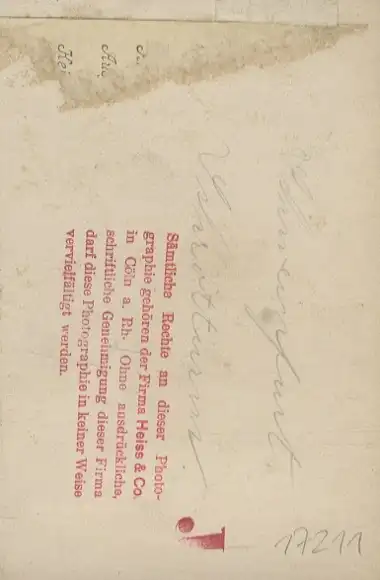 Schweinfurt.
Schrotturm
Sämtliche Rechte an dieser Photo-
graphie gehören der Firma Heiss & Co.
in Cöln a. Rh. Ohne ausdrückliche,
schriftliche Genehmigung dieser Firma
darf diese Photographie in keiner Weise
vervielfältigt werden.
17211